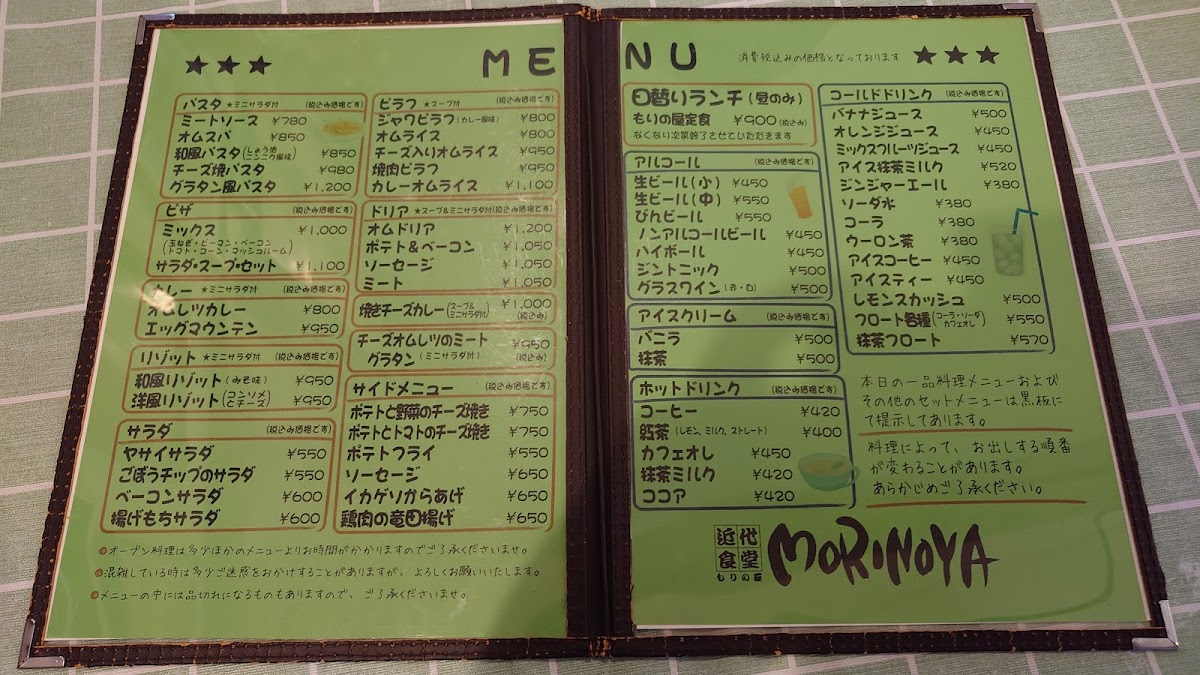 ★★★ ME
パスタ ★ミニサラダ付 (税込み価格です)
ミートソース ¥780
オムスパ ¥850
和風パスタ(しょう油ニンニク風味) ¥850
チーズ焼パスタ ¥980
グラタン風パスタ ¥1,200
ピザ (税込み価格です)
ミックス ¥1,000
(玉ねぎ・ピーマン・ベーコン
トマト・コーン・マッシュルーム)
サラダ・スープ・セット ¥1,100
カレー ★ミニサラダ付 (税込み価格です)
オムレツカレー ¥800
エッグマウンテン ¥950
リゾット ★ミニサラダ付 (税込み価格です)
和風リゾット(みそ味) ¥950
洋風リゾット(コンソメとチーズ) ¥950
サラダ (税込み価格です)
ヤサイサラダ ¥550
ごぼうチップのサラダ ¥550
ベーコンサラダ ¥600
揚げもちサラダ ¥600
ピラフ ★スープ付 (税込み価格です)
ジャワピラフ(カレー風味) ¥800
オムライス ¥800
チーズ入りオムライス ¥950
焼肉ピラフ ¥950
カレーオムライス ¥1,100
ドリア ★スープ&ミニサラダ付(税込み価格です)
オムドリア ¥1,200
ポテト&ベーコン ¥1,050
ソーセージ ¥1,050
ミート ¥1,050
焼きチーズカレー(スープ&ミニサラダ付) ¥1,000 (税込み)
チーズオムレツのミート ¥950
グラタン(ミニサラダ付) (税込み)
サイドメニュー (税込み価格です)
ポテトと野菜のチーズ焼き ¥750
ポテトとトマトのチーズ焼き ¥750
ポテトフライ ¥550
ソーセージ ¥650
イカゲソからあげ ¥650
鶏肉の竜田揚げ ¥650
●オーブン料理は多少ほかのメニューよりお時間がかかりますのでご了承くださいませ。
●混雑している時は多少ご迷惑をおかけすることがありますが、よろしくお願いいたします。
●メニューの中には品切れになるものもありますので、ご了承くださいませ。
NU 消費税込みの価格となっております ★★★
日替りランチ(昼のみ)
もりの屋定食 ¥900(税込み)
なくなり次第終了させていただきます
アルコール (税込み価格です)
生ビール(小) ¥450
生ビール(中) ¥550
びんビール ¥550
ノンアルコールビール ¥450
ハイボール ¥450
ジントニック ¥500
グラスワイン(赤・白) ¥500
アイスクリーム (税込み価格です)
バニラ ¥500
抹茶 ¥500
ホットドリンク (税込み価格です)
コーヒー ¥420
紅茶(レモン、ミルク、ストレート) ¥400
カフェオレ ¥450
抹茶ミルク ¥420
ココア ¥420
コールドドリンク (税込み価格です)
バナナジュース ¥500
オレンジジュース ¥450
ミックスフルーツジュース ¥450
アイス抹茶ミルク ¥520
ジンジャーエール ¥380
ソーダ水 ¥380
コーラ ¥380
ウーロン茶 ¥380
アイスコーヒー ¥450
アイスティー ¥450
レモンスカッシュ ¥500
フロート各種(コーラ・ソーダカフェオレ) ¥550
抹茶フロート ¥570
本日の一品料理メニューおよび
その他のセットメニューは黒板に
て提示してあります。
料理によって、お出しする順番
が変わることがあります。
あらかじめご了承ください。
近代
食堂
もりの屋
MORINOYA